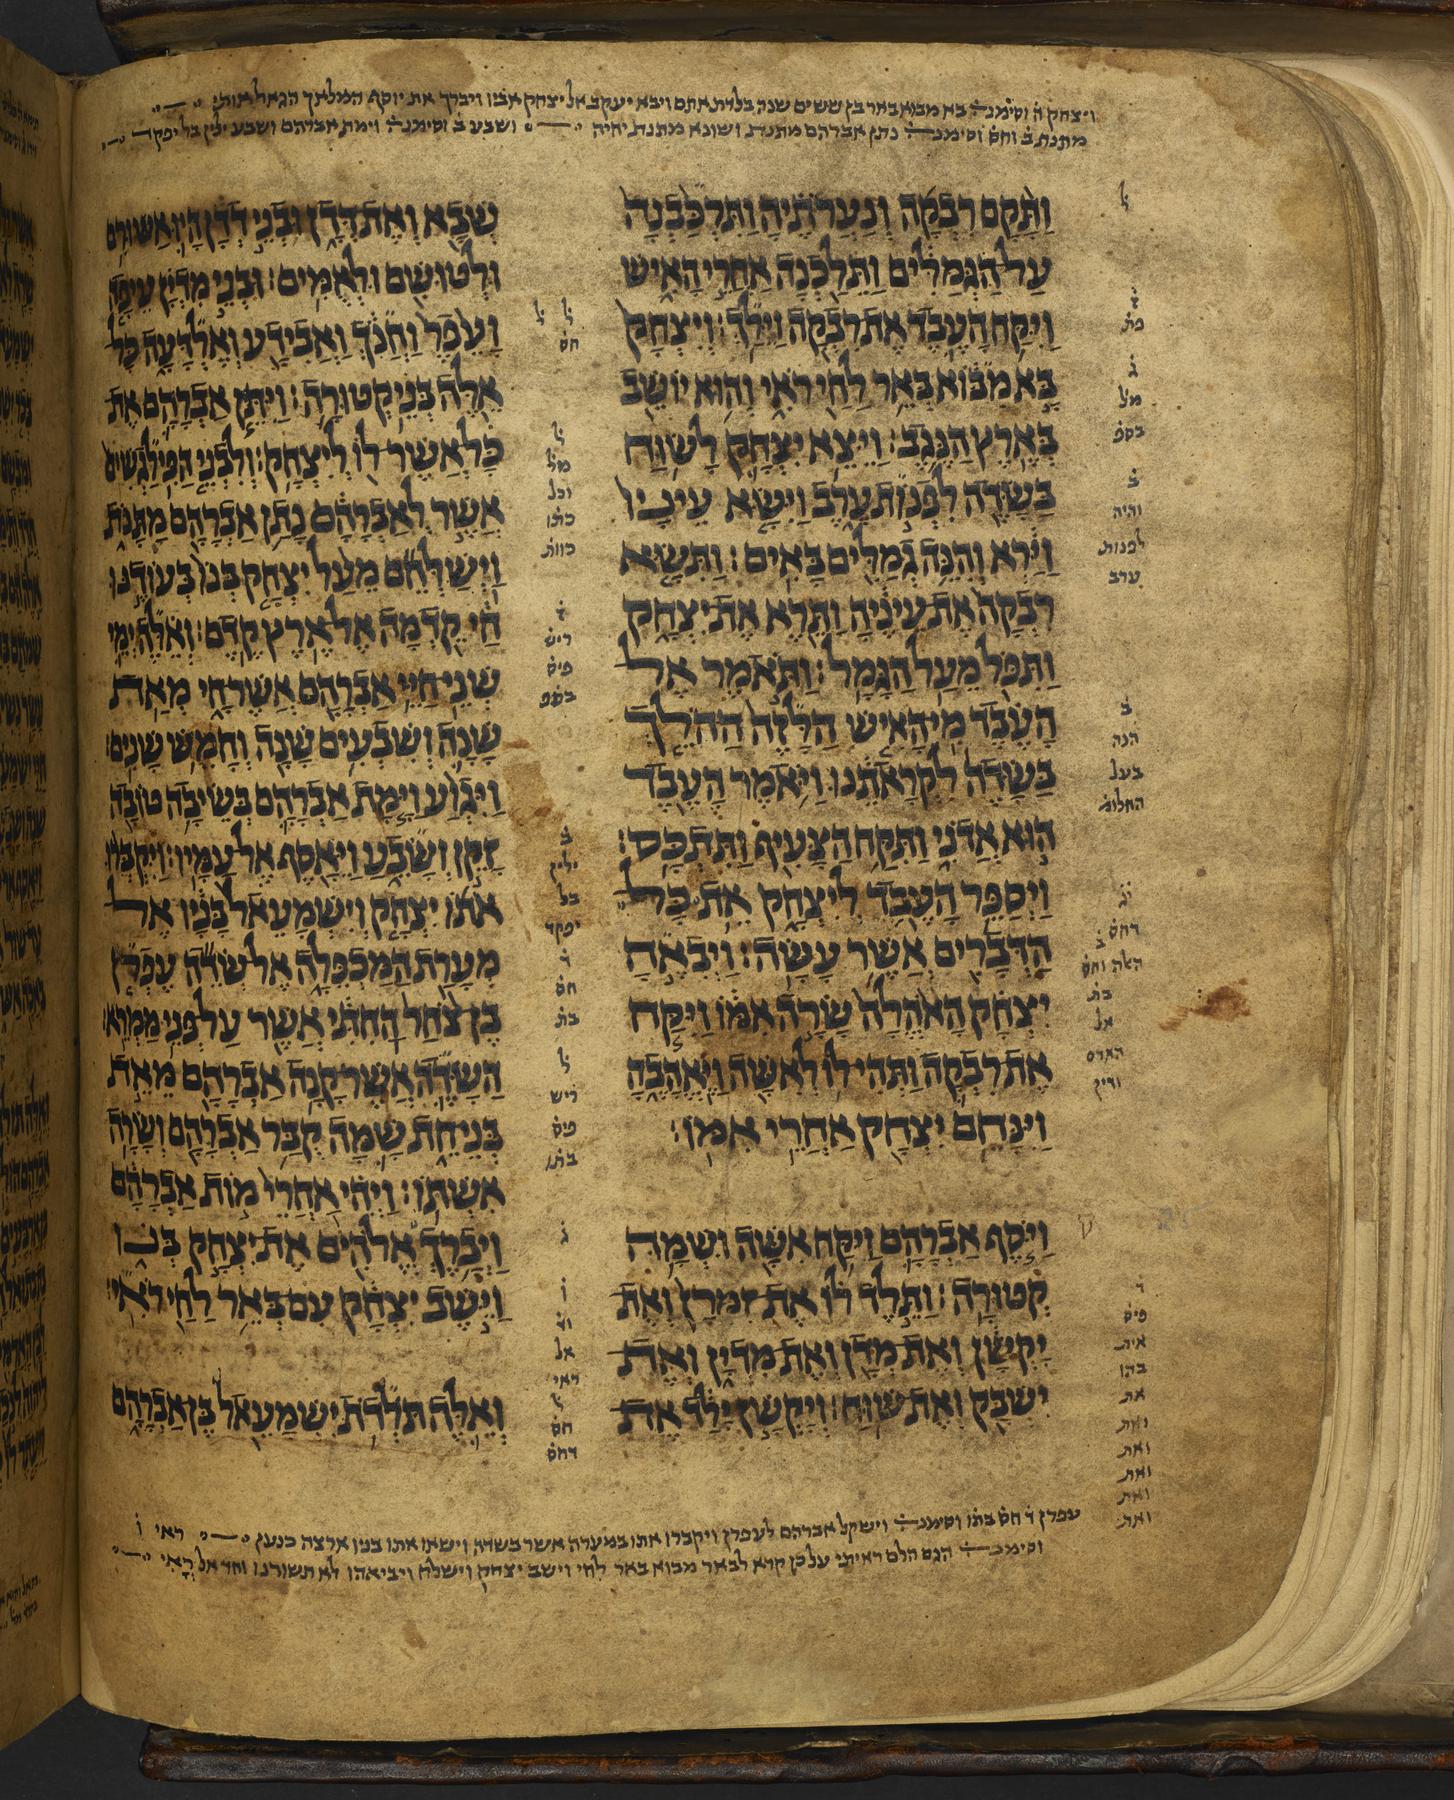 ויצחק ה וסימנ בא מבוא באר בן ששים שנה בלדת אתם ויבא יעקב אל יצחק אביו ויברך את יוסף המלאך הגאל אותי
מתנת ב וחס וסימנ נתן אברהם מתנת ושונא מתנת יחיה ושבע ב וסימנ וימת אברהם ושבע ילין בל יפקד
וַתָּקָם רִבְקָה וְנַעֲרֹתֶיהָ וַתִּרְכַּבְנָה
עַל הַגְּמַלִּים וַתֵּלַכְנָה אַחֲרֵי הָאִישׁ
וַיִּקַּח הָעֶבֶד אֶת רִבְקָה וַיֵּלַךְ׃ וְיִצְחָק
בָּא מִבּוֹא בְּאֵר לַחַי רֹאִי וְהוּא יוֹשֵׁב
בְּאֶרֶץ הַנֶּגֶב׃ וַיֵּצֵא יִצְחָק לָשׂוּחַ
בַּשָּׂדֶה לִפְנוֹת עָרֶב וַיִּשָּׂא עֵינָיו
וַיַּרְא וְהִנֵּה גְמַלִּים בָּאִים׃ וַתִּשָּׂא
רִבְקָה אֶת עֵינֶיהָ וַתֵּרֶא אֶת יִצְחָק
וַתִּפֹּל מֵעַל הַגָּמָל׃ וַתֹּאמֶר אֶל
הָעֶבֶד מִי הָאִישׁ הַלָּזֶה הַהֹלֵךְ
בַּשָּׂדֶה לִקְרָאתֵנוּ וַיֹּאמֶר הָעֶבֶד
הוּא אֲדֹנִי וַתִּקַּח הַצָּעִיף וַתִּתְכָּס׃
וַיְסַפֵּר הָעֶבֶד לְיִצְחָק אֵת כָּל
הַדְּבָרִים אֲשֶׁר עָשָׂה׃ וַיְבִאֶהָ
יִצְחָק הָאֹהֱלָה שָׂרָה אִמּוֹ וַיִּקַּח
אֶת רִבְקָה וַתְּהִי לוֹ לְאִשָּׁה וַיֶּאֱהָבֶהָ
וַיִּנָּחֵם יִצְחָק אַחֲרֵי אִמּוֹ׃
וַיֹּסֶף אַבְרָהָם וַיִּקַּח אִשָּׁה וּשְׁמָהּ
קְטוּרָה׃ וַתֵּלֶד לוֹ אֶת זִמְרָן וְאֶת
יָקְשָׁן וְאֶת מְדָן וְאֶת מִדְיָן וְאֶת
יִשְׁבָּק וְאֶת שׁוּחַ׃ וְיָקְשָׁן יָלַד אֶת
ל
פת
ג
מל
בספ
ב
והיה
לפנות
ערב
ב
הנה
בעל
החלומ
דחס
האה וחס
בת
אל
ד
פיס
אית
בהן
את
ואת
ואת
ואת
ואת
ואת
שְׁבָא וְאֶת דְּדָן וּבְנֵי דְדָן הָיוּ אַשּׁוּרִם
וּלְטוּשִׁם וּלְאֻמִּים׃ וּבְנֵי מִדְיָן עֵיפָה
וָעֵפֶר וַחֲנֹךְ וַאֲבִידָע וְאֶלְדָּעָה כָּל
אֵלֶּה בְּנֵי קְטוּרָה׃ וַיִּתֵּן אַבְרָהָם אֶת
כָּל אֲשֶׁר לוֹ לְיִצְחָק׃ וְלִבְנֵי הַפִּילַגְשִׁים
אֲשֶׁר לְאַבְרָהָם נָתַן אַבְרָהָם מַתָּנֹת
וַיְשַׁלְּחֵם מֵעַל יִצְחָק בְּנוֹ בְּעוֹדֶנּוּ
חַי קֵדְמָה אֶל אֶרֶץ קֶדֶם׃ וְאֵלֶּה יְמֵי
שְׁנֵי חַיֵּי אַבְרָהָם אֲשֶׁר חָי מְאַת
שָׁנָה וְשִׁבְעִים שָׁנָה וְחָמֵשׁ שָׁנִים׃
וַיִּגְוַע וַיָּמָת אַבְרָהָם בְּשֵׂיבָה טוֹבָה
זָקֵן וְשָׂבֵעַ וַיֵּאָסֶף אֶל עַמָּיו׃ וַיִּקְבְּרוּ
אֹתוֹ יִצְחָק וְיִשְׁמָעֵאל בָּנָיו אֶל
מְעָרַת הַמַּכְפֵּלָה אֶל שְׂדֵה עֶפְרֹן
בֶּן צֹחַר הַחִתִּי אֲשֶׁר עַל פְּנֵי מַמְרֵא׃
הַשָּׂדֶה אֲשֶׁר קָנָה אַבְרָהָם מֵאֵת
בְּנֵי חֵת שָׁמָּה קֻבַּר אַבְרָהָם וְשָׂרָה
אִשְׁתּוֹ׃ וַיְהִי אַחֲרֵי מוֹת אַבְרָהָם
וַיְבָרֶךְ אֱלֹהִים אֶת יִצְחָק בְּנוֹ
וַיֵּשֶׁב יִצְחָק עִם בְּאֵר לַחַי רֹאִי׃
וְאֵלֶּה תֹּלְדֹת יִשְׁמָעֵאל בֶּן אַבְרָהָם
ל ל
חס
ל
מל
וכל
כתו
כוות
ריש
פיס
בספ
ב
ילין
בל
יפקד
ד
חס
בת
ל
ריש
פיס
בתו
ג
ו
אל
ראי
ל
חס
דחס
עפרן ד חס בתו וסימנ וישקל אברהם לעפרן ויקברו אתו במערה אשר בשדה וישאו אתו בניו ארצה כנען ראי ו
וסימנ הגם הלם ראיתי על כן קרא לבאר מבוא באר לחי וישב יצחק וישלח ויביאהו לא תשורנו וחד אל ראי